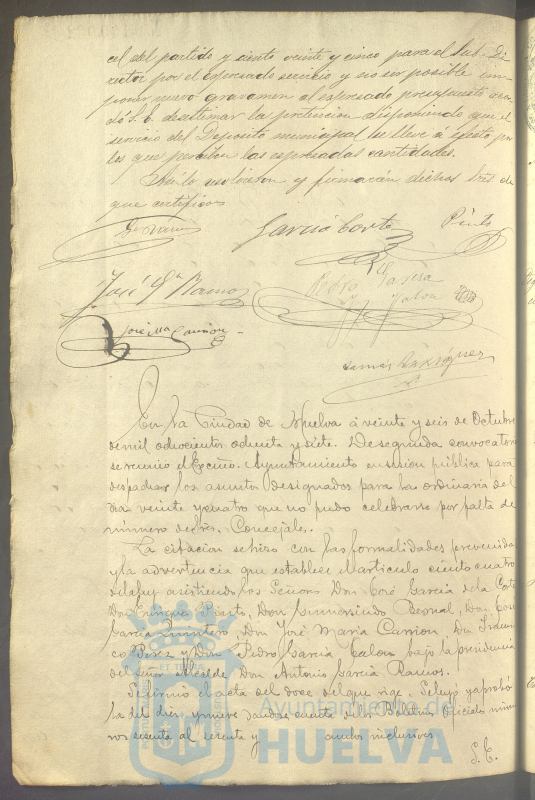 cel del partido y ciento veinte y cinco para el Sub-Di
rector por el espresado servicio y no ser posible im-
poner nuevo gravamen al espresado presupuesto acor-
dó S.E. desestimar la pretencion disponiendo que el
servicio del Deposito municipal se lleve á efecto por
los que perciben las espresadas cantidades.
Asi lo resolvieron y firmarán dichos Sres de
que certifico
Garcia Corte
Pinto
José Gª Ramos
Pedro Garcia
Jalon
José Mª Carrion
En la Ciudad de Huelva á veinte y seis de Octubre
de mil ochocientos ochenta y siete. De segunda convocatoria
se reunió el Excmo. Ayuntamiento en sesion pública para
despachar los asuntos designados para la ordinaria del
dia veinte y cuatro que no pudo celebrarse por falta de
número de Sres. Concejales.
La citacion se hizo con las formalidades prevenidas
y la advertencia que establece el articulo ciento cuatro
de la ley asistiendo los Señores Don José Garcia de la Corte
Don Enrique Pinto, Don Gumersindo Bernal, Don José
Garcia Quintero, Don José Maria Carrion, Don Francis
co Perez y Don Pedro Garcia Jalon bajo la presidencia
del señor Alcalde Don Antonio Garcia Ramos.
Se firmó el acta del doce del que rige. Se leyó y aprobó
la del diez y nueve dandose cuenta de los Boletines Oficiales núme
ros sesenta al sesenta y ambos inclusives
S.E.
Ayuntamiento de
HUELVA